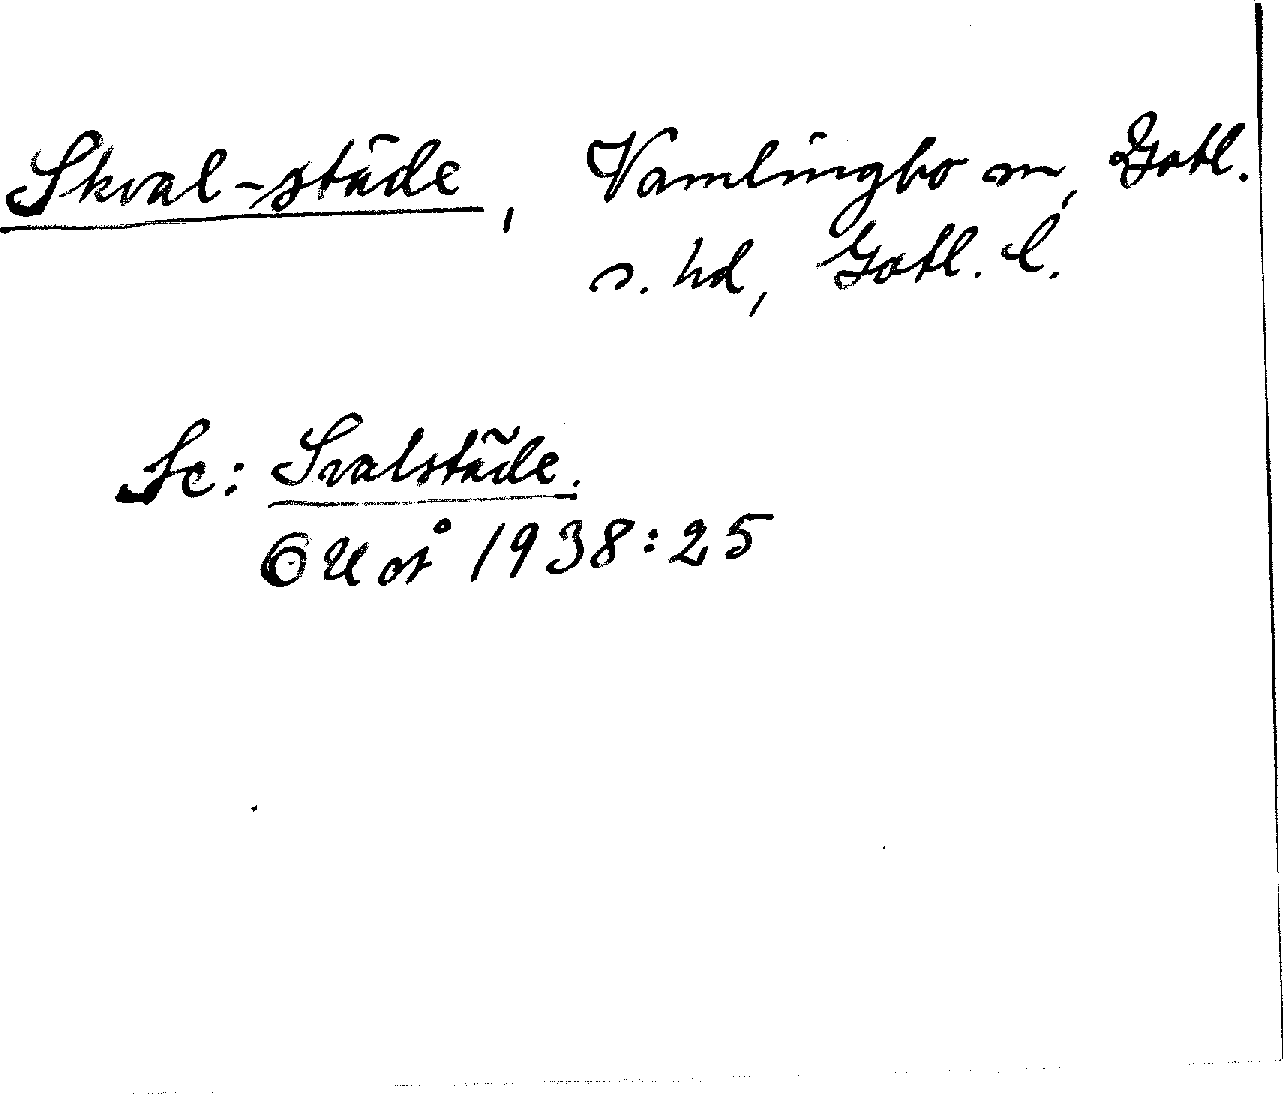 Skval-städe, Vamlingbo sn, Gotl.
s. hd, Gotl. l.
Se: Svalstäde.
OUÅ 1938:25